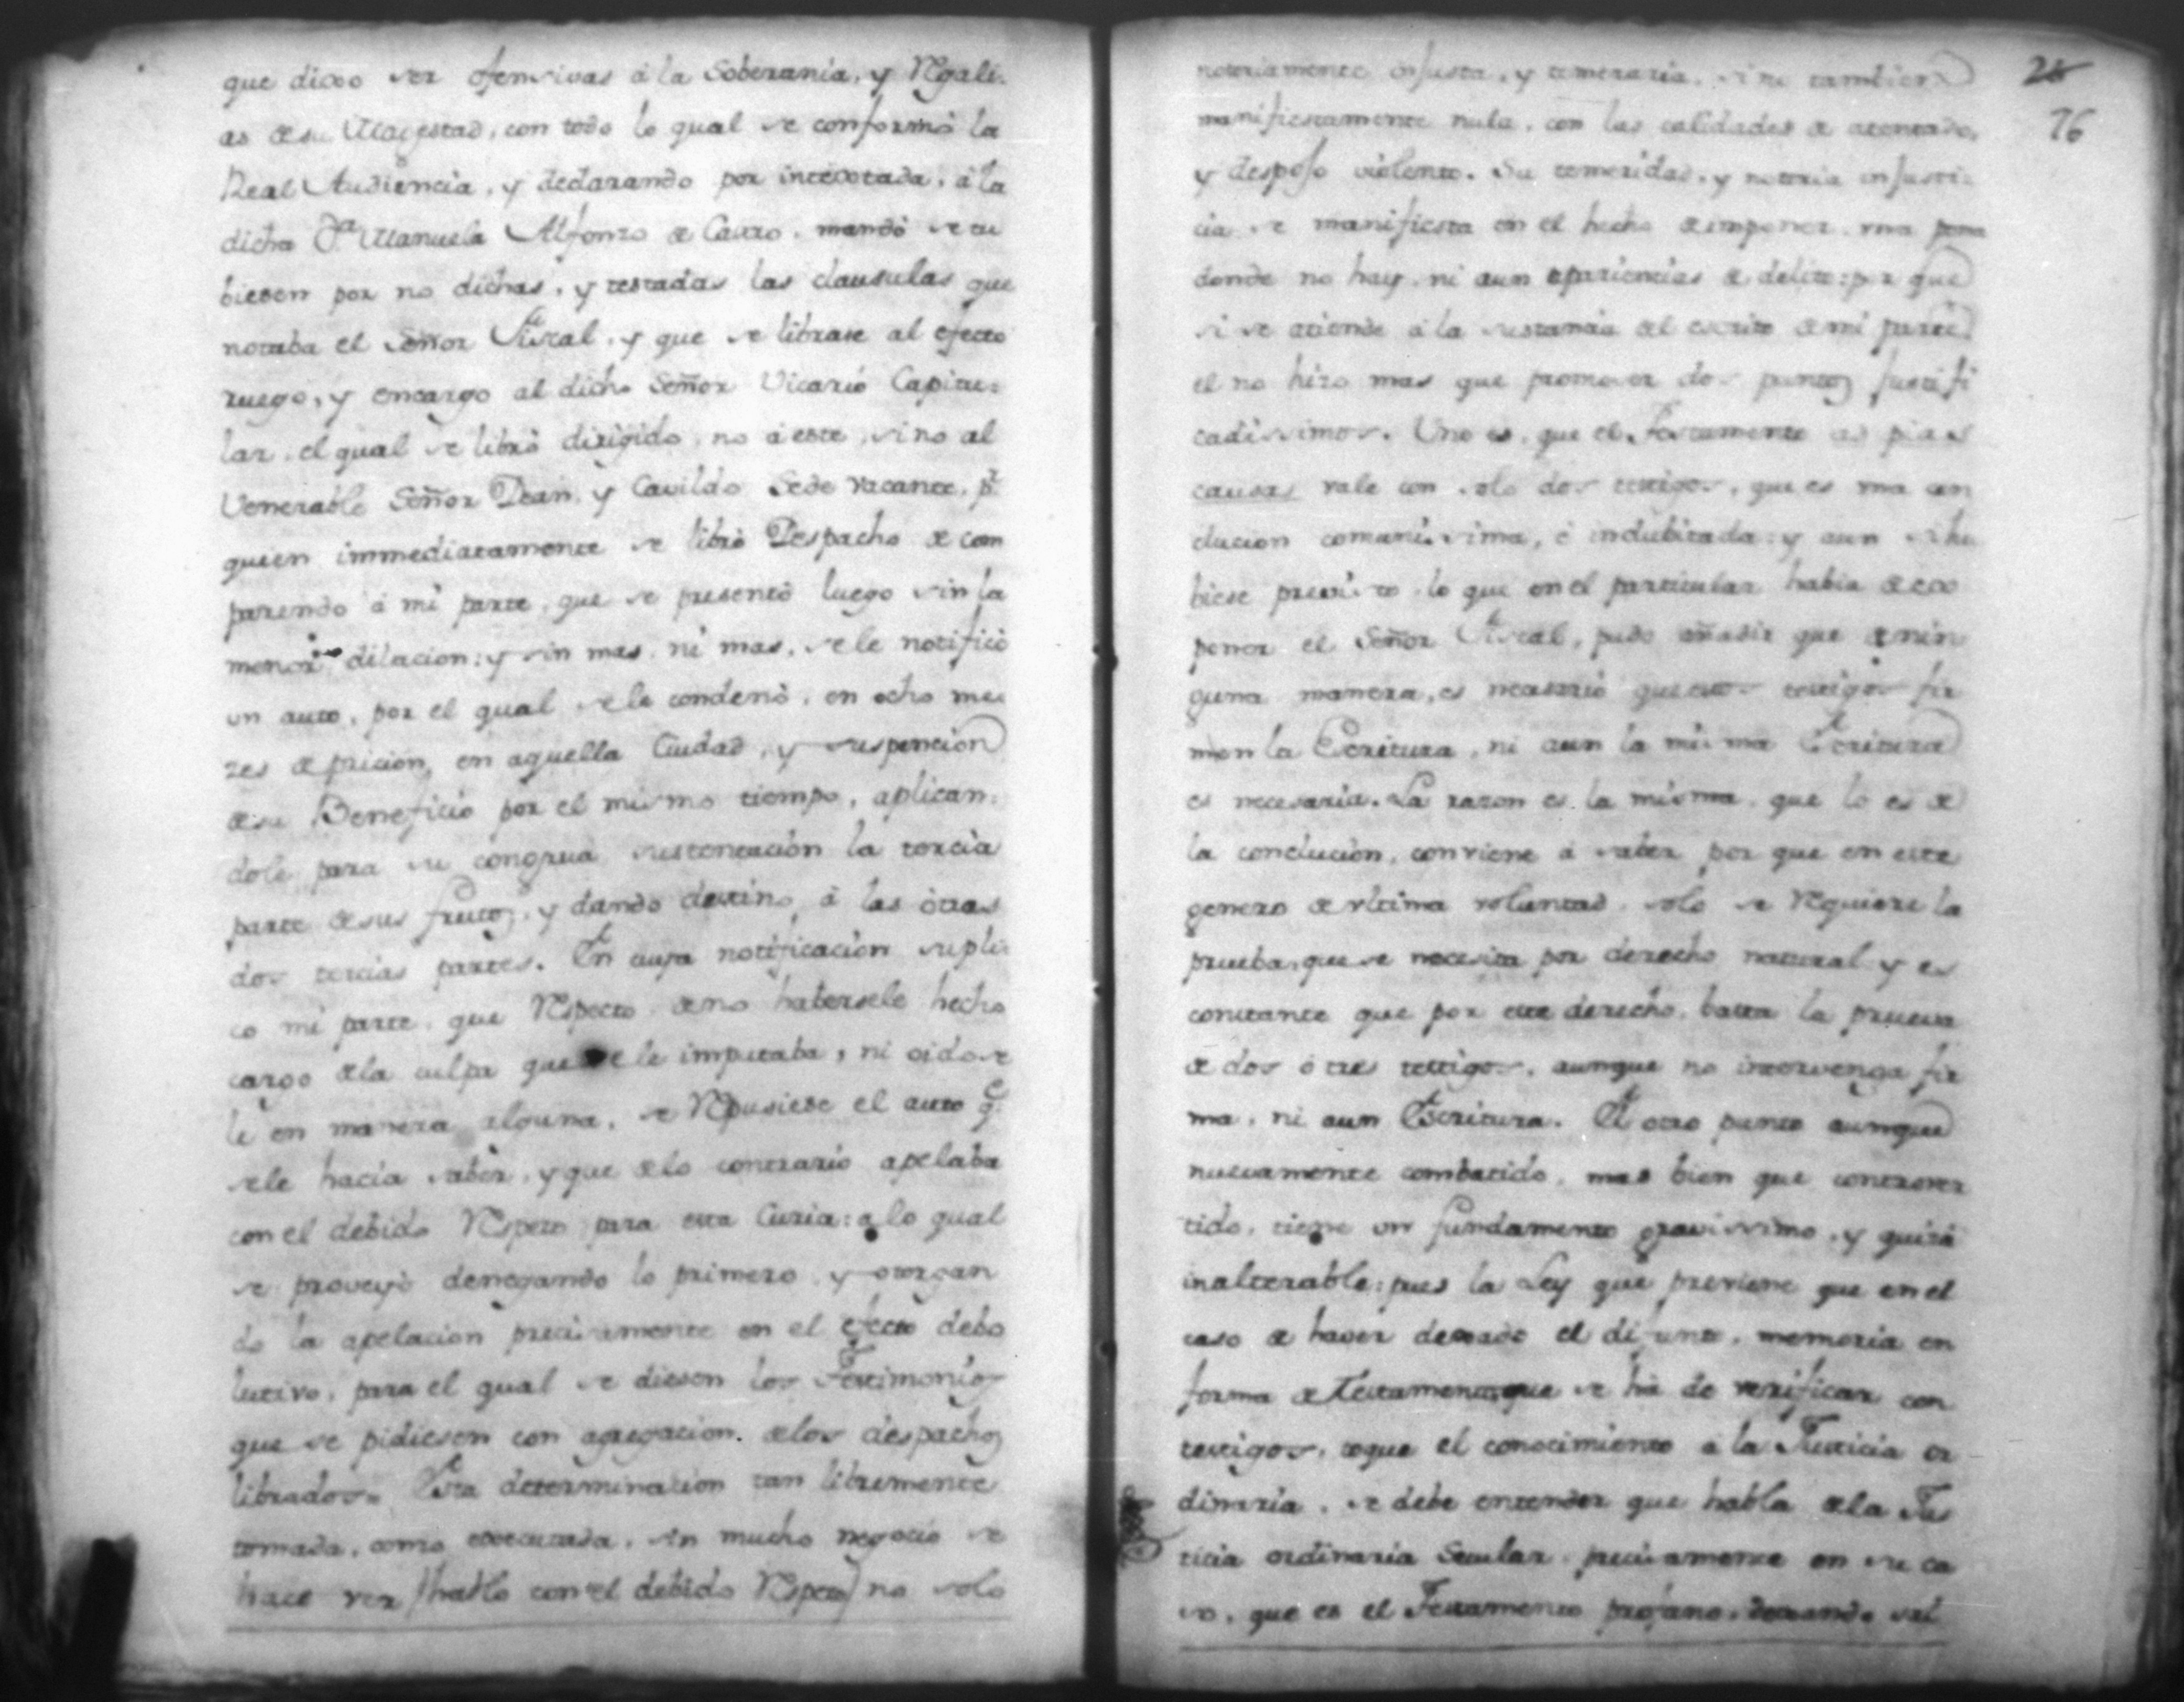 que dixo ser ofensivas á la Soberania, y Regali-
as de su Magestad, con todo lo qual se conformó la
Real Audiencia, y declarando por intestada, á la
dicha Dª Manuela Alfonzo de Castro, mandó se tu
biesen por no dichas, y testadas las clausulas que
notaba el Señor Fiscal, y que se librase al efecto
ruego, y encargo al dicho Señor Vicario Capitu-
lar, el qual se libró dirigido, no á este, sino al
Venerable Señor Dean, y Cavildo Sede vacante, pr.
quien immediatamente se libró Despacho de com
parendo á mi parte, que se presentó luego sin la
menor dilacion: y sin mas, ni mas, se le notificó
un auto, por el qual se le condenó, en ocho me-
zes de pricion, en aquella Ciudad, y suspencion
de su Beneficio por el mismo tiempo, aplican-
dole para su congrua sustentación la tercia
parte de sus frutos, y dando destino á las otras
dos tercias partes. En cuya notificacion supli-
co mi parte, que Respecto de no habersele hecho
cargo de la culpa que se le imputaba, ni oidose
le en manera alguna, se Repusiese el auto q.e
se le hacia saber, y que de lo contrario apelaba
con el debido Respeto para esta Curia: a lo qual
se proveyó denegando lo primero, y otorgan
do la apelacion precisamente en el efecto debo
lutivo, para el qual se diesen los Testimonios
que se pidiesen con agregacion de los despachos
librados. Esta determinacion tan libremente
tomada, como executada, sin mucho negocio se
hace ver (hablo con el debido Respeto) no solo
28
76
notoriamente injusta, y temeraria, sino tambien
manifiestamente nula, con las calidades de atentado,
y despojo violento. Su temeridad, y notoria injusti-
cia se manifiesta en el hecho de imponer una pena
donde no hay, ni aun apariencias de delito: por que
si se atiende á la sustancia del escrito de mi parte
el no hizo mas que promover dos puntos justifi
cadissimos. Uno es, que el Testamento ad pias
causas vale con solo dos testigos, que es una con
clucion comunissima, é indubitada: y aun si hu
biese previsto lo que en el particular habia de ex
poner el Señor Fiscal, pudo añadir que de nin
guna manera, es necesario que estos testigos fir
men la Escritura, ni aun la misma Escritura
es necesaria. La razon es la misma, que lo es de
la conclucion, conviene á saber, por que en este
genero de ultima voluntad, solo se Requiere la
prueba, que se necesita por derecho natural y es
constante que por este derecho, basta la prueva
de dos ó tres testigos, aunque no intervenga fir
ma, ni aun Escritura. El otro punto aunque
nuevamente combatido, mas bien que controver
tido, tiene un fundamento gravissimo, y quizá
inalterable: pues la Ley que previene que en el
caso de haver dexado el difunto, memoria en
forma de Testamento, que se ha de verificar con
testigos, toque el conocimiento á la Justicia or
dinaria, se debe entender que habla de la Jus
ticia ordinaria Secular precisamente en su ca
so, que es el Testamento profano, dexando sal